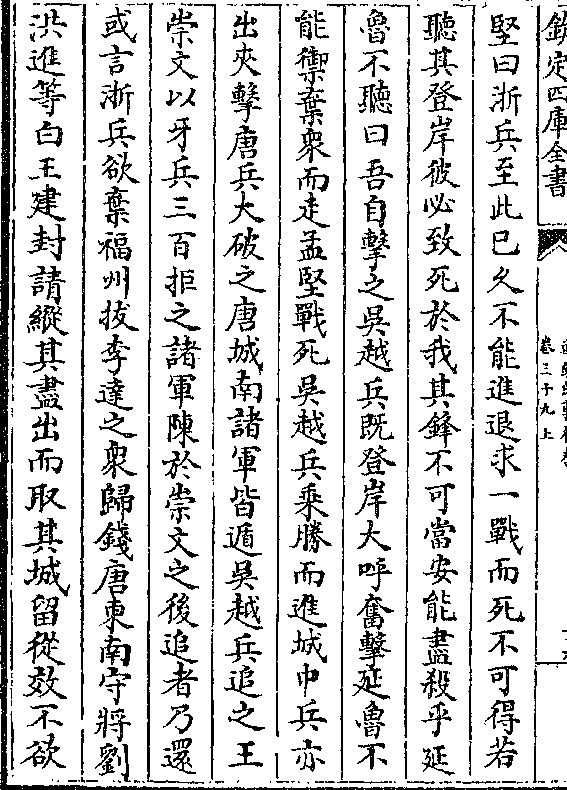 欽定四庫全書
卷三十九上
堅曰浙兵至此已久不能進退求一戰而死不可得若
聽其登岸彼必致死於我其鋒不可當安能盡殺乎延
魯不聽曰吾自擊之吳越兵既登岸大呼奮擊延魯不
能禦棄衆而走孟堅戰死吳越兵乘勝而進城中兵亦
出夾擊唐兵大破之唐城南諸軍皆遁吳越兵追之王
崇文以牙兵三百拒之諸軍陳於崇文之後追者乃還
或言浙兵欲棄福州拔李達之衆歸錢唐東南守將劉
洪進等白王建封請縱其盡出而取其城留從效不欲